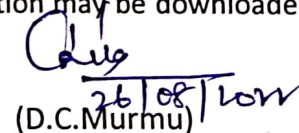 tion may be downloade
26/08/2022
(D.C.Murmu)